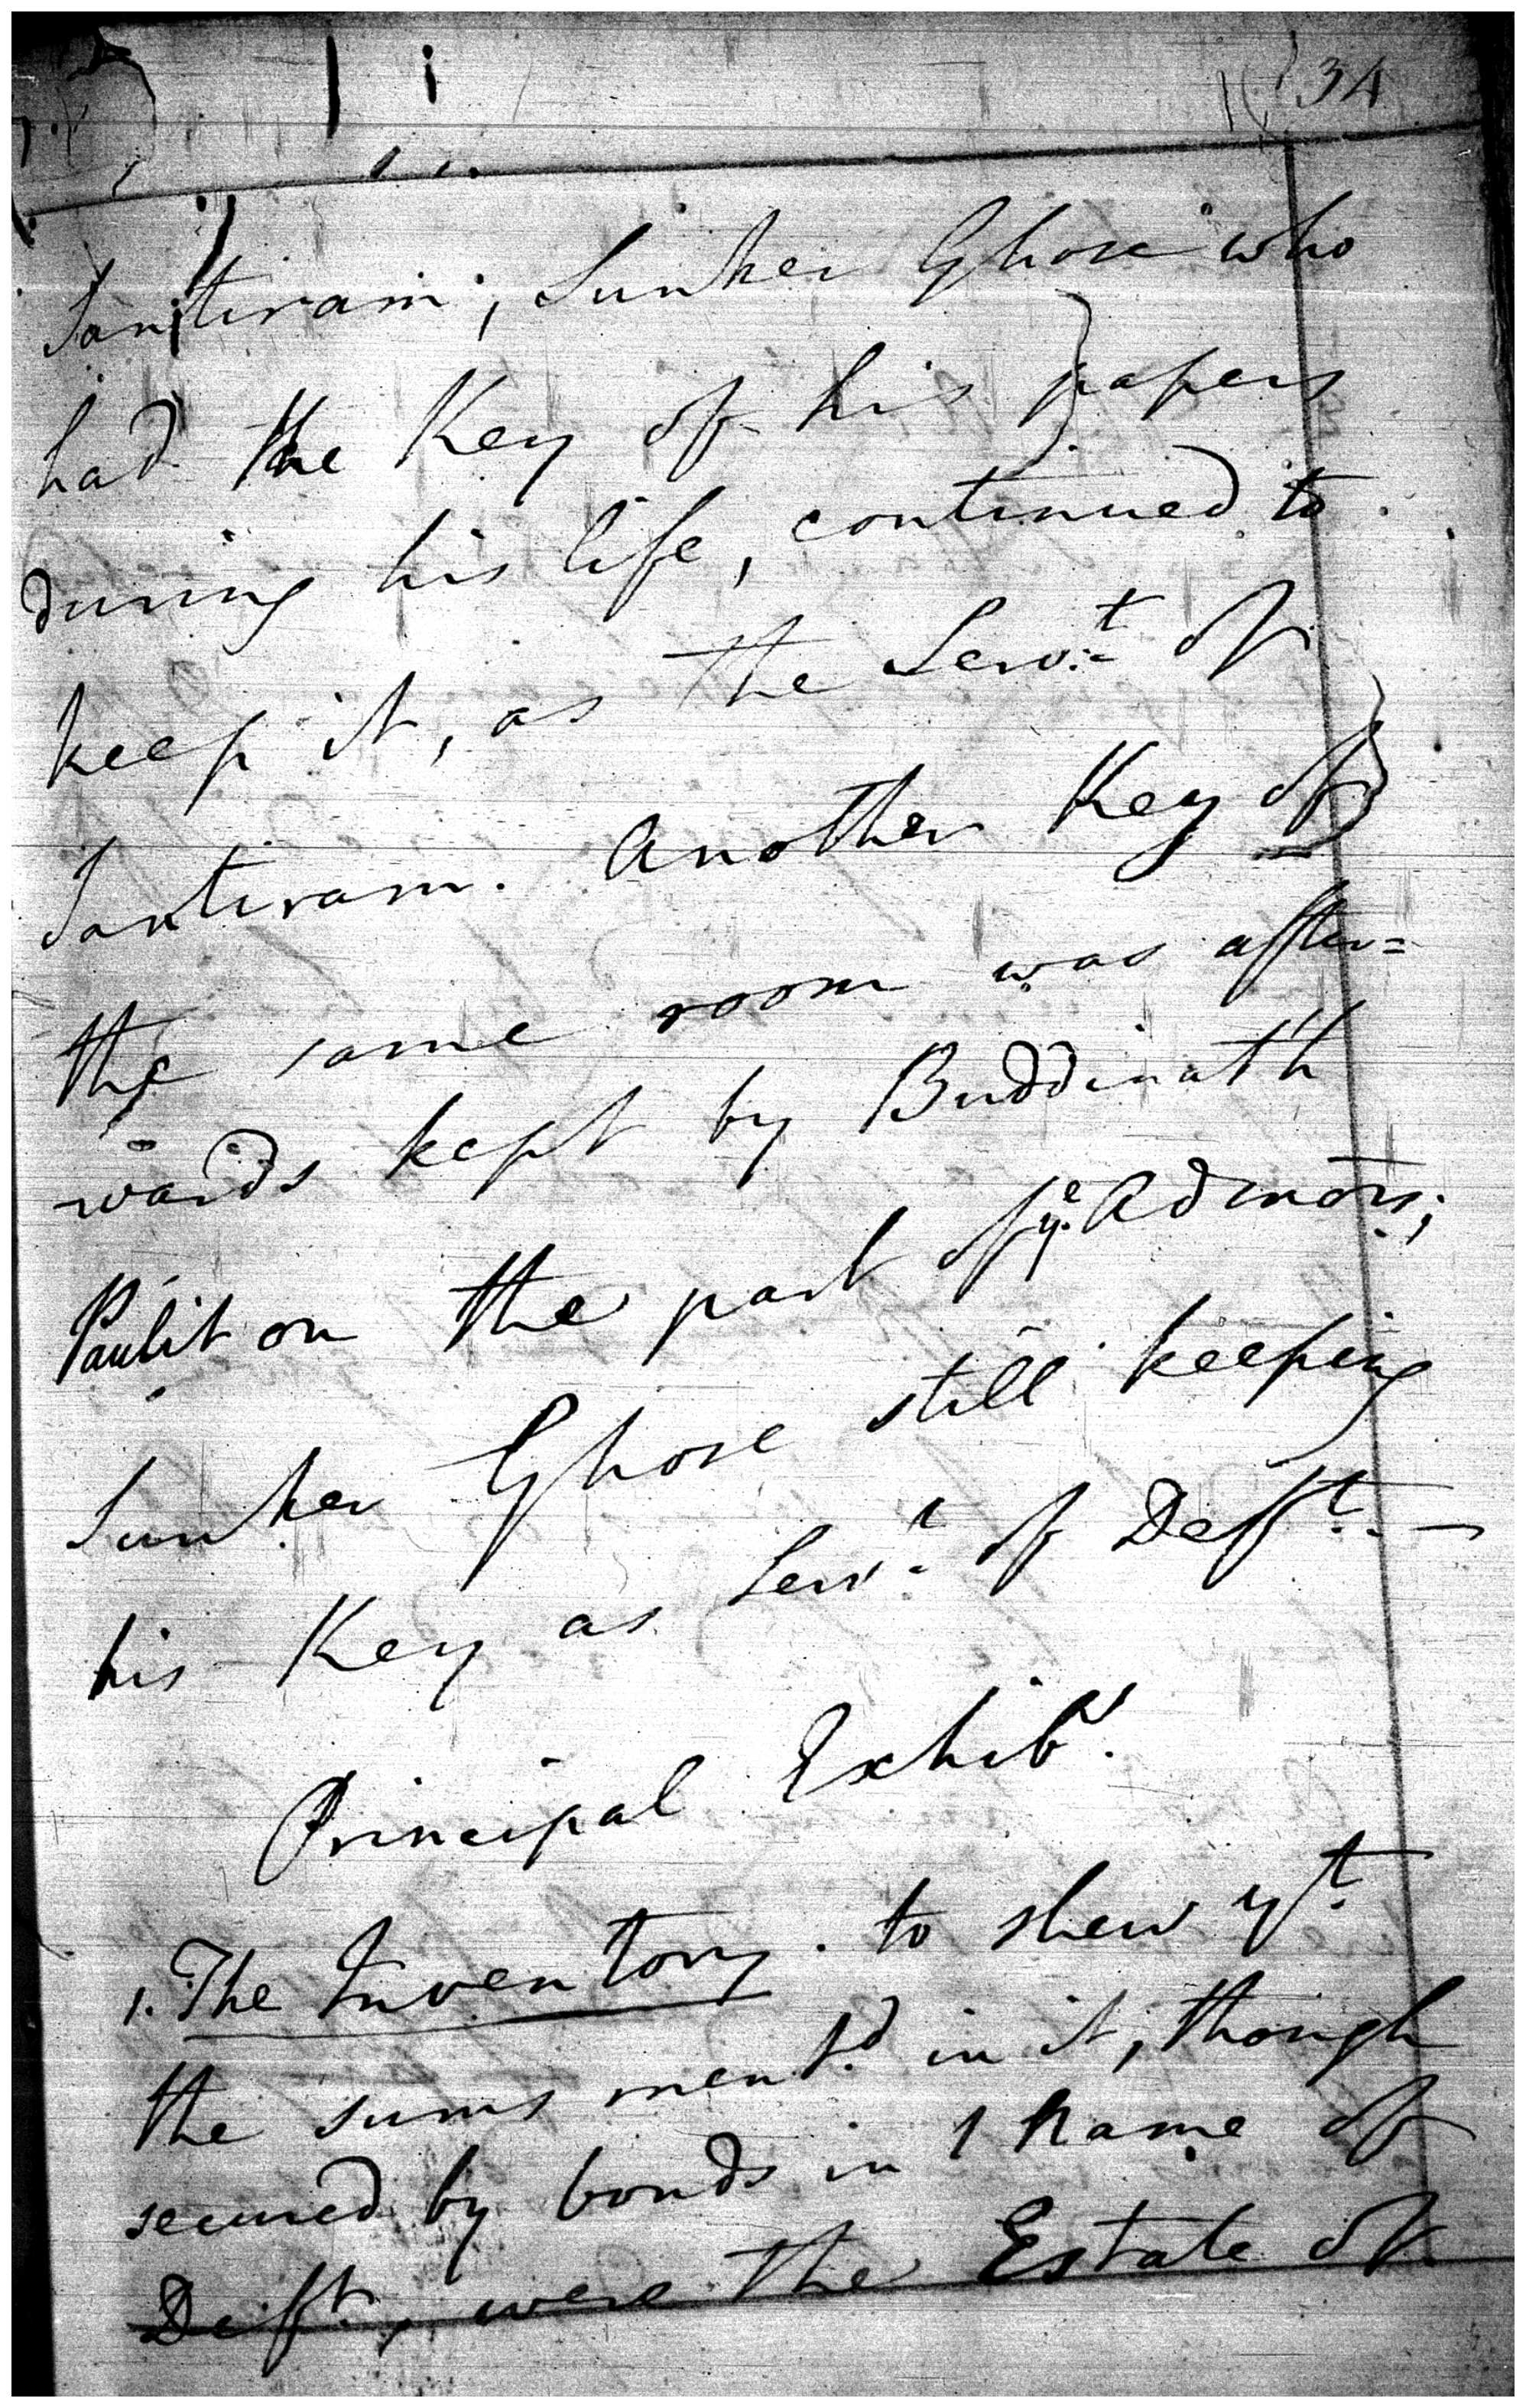 34
Santiram; Sunker Ghose who
had the Key of his papers
during his life, continued to
keep it, as the Serv.t of
Santiram. Another Key of
the same room was after=
wards kept by Buddinath
Paulit on the part of ye. Admors;
Sunker Ghose still keeping
his Key as Serv.t of Deft. —
Principal Exhib.s
1. The Inventory. to shew yt.
the sums ment.d in it, though
secured by bonds in 1 Name of
Deft, were the Estate of